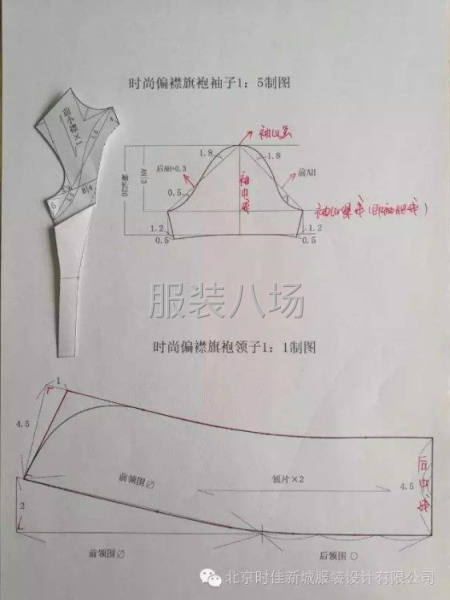 时尚偏襟旗袍袖子1：5制图
袖山高
1.8
1.8
后AH+0.3
前AH
AH/3
袖长20
袖中线
0.5
1
袖山深线（即袖肥线）
1.2
0.5
1.2
0.5
服装八场
时尚偏襟旗袍领子1：1制图
1
4.5
前领围∅
领片×2
4.5
后中线
2
前领围∅
后领围○
北京时佳新城服装设计有限公司